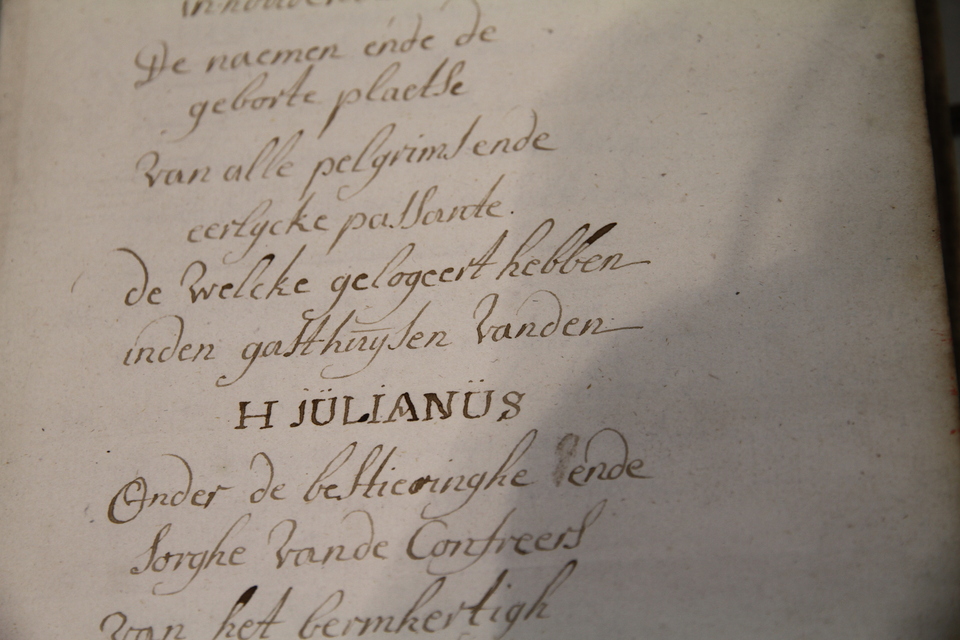 in-houdende
De naemen ende de
geborte plaetse
van alle pelgrims ende
eerlycke passante.
de welcke gelogeert hebben
inden gasthuysen vanden
H JÜLIANÜS
Onder de bestieringhe ende
sorghe vande Confreers
van het bermhertigh